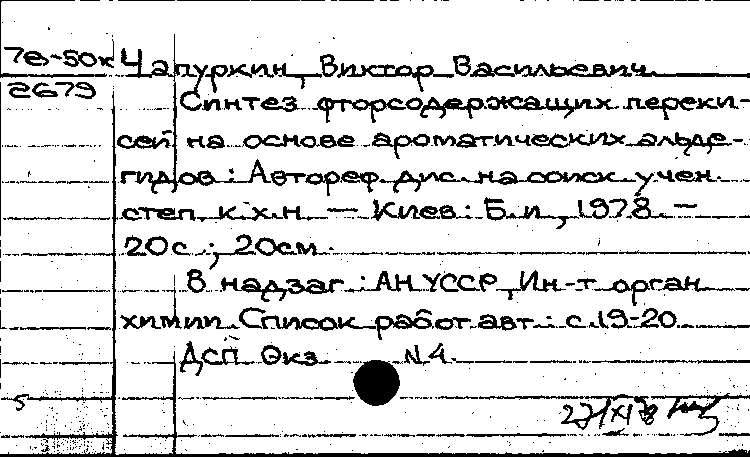 7в-50к Чапуркин, Виктор Васильевич.
2679
Синтез фторсодержащих переки-
сей на основе ароматических альде-
гидов: Автореф. дис. на соиск. учен.
степ. к.х.н. — Киев: Б.и., 1978. —
20с.; 20см.
В надзаг.: АН УССР, Ин-т орган.
химии. Список работ авт.: с.19-20
ДСП Экз. N4.
5
27/XI 78